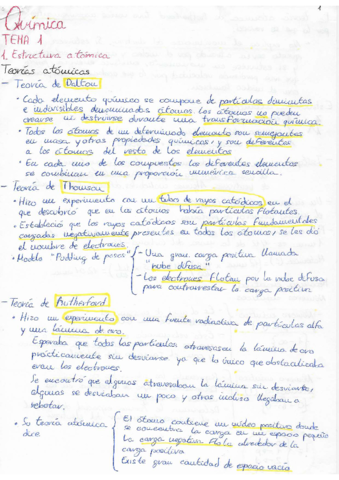 1
Química
TEMA 1
1. Estructura atómica
Teorías atómicas
- Teoría de Dalton
• Cada elemento químico se compone de partículas diminutas
e indivisibles denominadas átomos. Los átomos no pueden
crearse ni destruirse durante una transformación química.
• Todos los átomos de un determinado elemento son semejantes
en masa y otras propiedades químicas, y son diferentes
a los átomos del resto de los elementos
• En cada uno de los compuestos los diferentes elementos
se combinan en una proporción numérica sencilla.
- Teoría de Thomson
• Hizo un experimento con un tubos de rayos catódicos en el
que descubrió que en los átomos había partículas flotantes
• Estableció que los rayos catódicos son partículas fundamentales
cargadas negativamente presentes en todos los átomos, se les dió
el nombre de electrones.
• Modelo "Pudding de pasas"
- Una gran carga positiva llamada
"nube difusa"
- Los electrones flotan por la nube difusa
para contrarrestar la carga positiva
- Teoría de Rutherford
• Hizo un experimento con una fuente radiactiva de partículas alfa
y una lámina de oro.
Esperaba que todas las partículas atravesasen la lámina de oro
prácticamente sin desviarse ya que lo único que obstaculizaba
eran los electrones.
Se encontró que algunas atravesaban la lámina sin desviarse,
algunas se desviaban un poco y otras incluso llegaban a
rebotar.
• Su teoría atómica
dice
El átomo contiene un núcleo positivo donde
se concentra la carga en un espacio pequeño
La carga negativa flota alrededor de la
carga positiva
Existe gran cantidad de espacio vacío